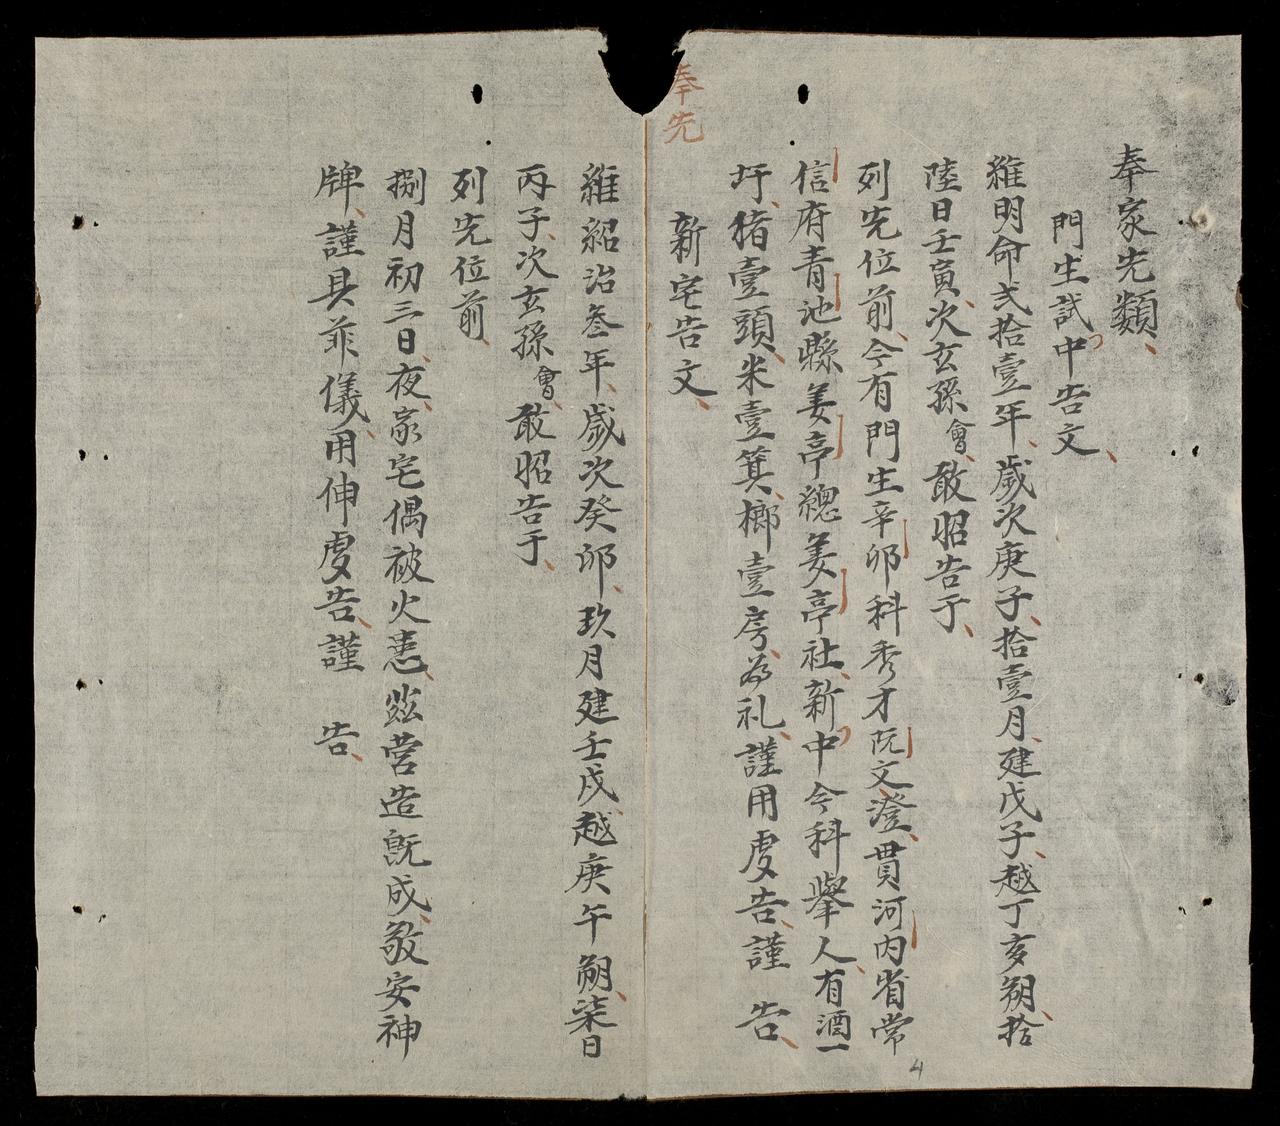 奉家先類
門生試中告文
維明命弍拾壹年歲次庚子拾壹月建戊子越丁亥朔拾
陸日壬寅次玄孫會敢昭告于
列先位前今有門生辛卯科秀才阮文澄貫河内省常
信府青池縣姜亭總姜亭社新中今科舉人有酒一
圩猪壹頭米壹箕榔壹房為礼謹用虔告謹告
新宅告文
奉先
維紹治叄年歲次癸卯玖月建壬戌越庚午朔柒日
丙子次玄孫會敢昭告于
列先位前
捌月初三日夜家宅偶被火患茲营造既成敬安神
牌謹具菲儀用伸虔告謹告
4